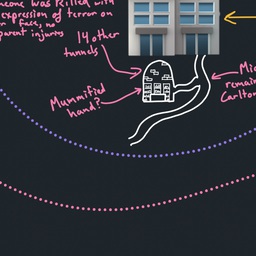 was killed with
expression of terror on
face, no
parent injury
14 other
tunnels
Mummified
hand?
remain
Carlton